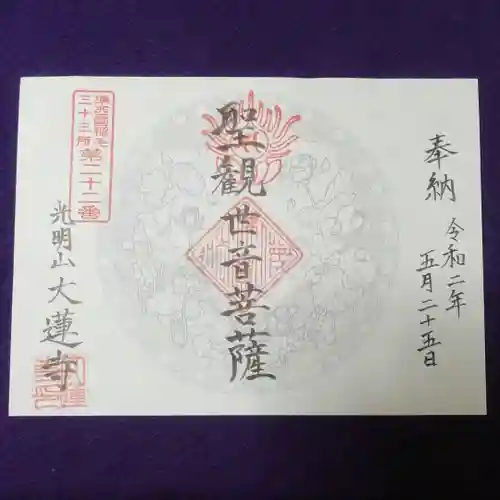 奉納
令和二年
五月二十五日
聖観世音菩薩
三十三所
第二十二番
光明山大蓮寺